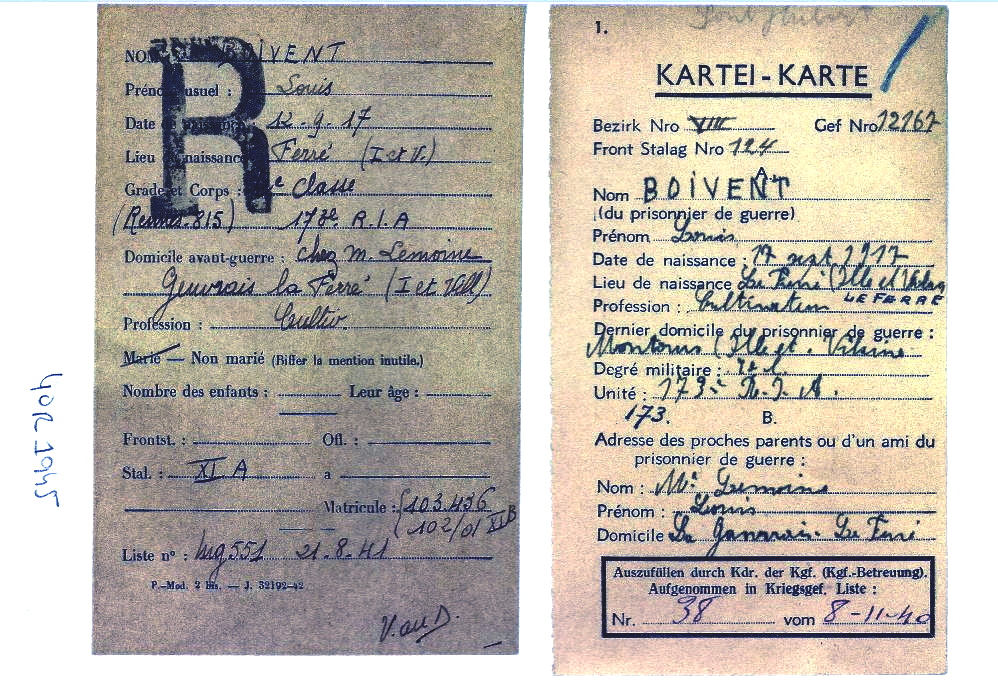 R
NOM : BOIVENT
Prénom usuel : Louis
Date de naissance : 12-9-17
Lieu de naissance Ferré (I et V.)
Grade et Corps : 2e classe
(Rennes.815) 173e R.I.A
Domicile avant-guerre : chez M. Lemoine
la Ferré (I et Vill)
Profession : Cultiv.
Marié — Non marié (Biffer la mention inutile.)
Nombre des enfants : Leur âge :
Frontst. : Ofl. :
Stal. : XI A a
Matricule : 103.436
102/01 XI B
Liste nº : 551 21-8-41
P.-Mod. 2 bis. — J. 32192-42
V. au D.
1.
KARTEI-KARTE
Bezirk Nro VIII Gef Nro 12167
Front Stalag Nro 124
Nom BOIVENT
(du prisonnier de guerre)
Prénom Louis
Date de naissance : 1917
Lieu de naissance Le Ferré (Ille et Vilaine
Profession : Cultivateur LE FERRE
Dernier domicile du prisonnier de guerre :
Montours (Ille et Vilaine
Degré militaire : 2e cl.
Unité : 173e R.I.A.
173. B.
Adresse des proches parents ou d'un ami du
prisonnier de guerre :
Nom : Mr Lemoine
Prénom : Louis
Domicile La Le Ferré
Auszufüllen durch Kdr. der Kgf. (Kgf.-Betreuung).
Aufgenommen in Kriegsgef. Liste :
Nr. 38 vom 8-11-40